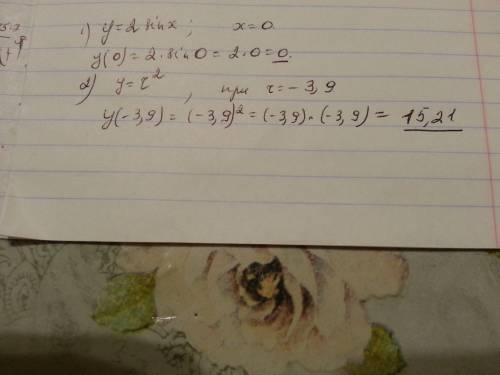 1) y = 2 sin x; x = 0.
y(0) = 2 · sin 0 = 2 · 0 = 0.
2) y = τ², при τ = -3,9
y(-3,9) = (-3,9)² = (-3,9) · (-3,9) = 15,21